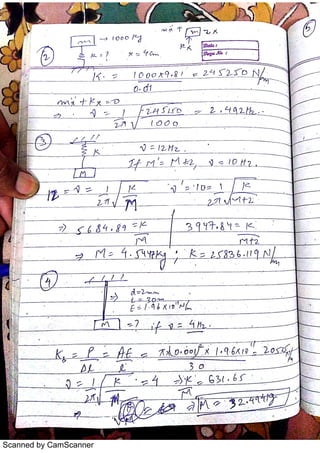 5
2
m → 1000 kg
K = ? x = 4cm
mẍ ↑ m ↑x
Kx
Date :
Page No :
K = 1000x9.81 = 245250 N/m
0.01
mẍ + Kx = 0
⇒ ν = 1/2π √245250/1000 = 2.492Hz.
3
K
M
ν = 12Hz.
If M' = M+2, ν = 10Hz.
12 = ν = 1/2π √K/M ν' = 10 = 1/2π √K/M+2
⇒ 5684.89 = K/M 3947.84 = K/M+2
⇒ M = 4.544kg ; K = 25836.119 N/m
4
d = 2mm
L = 30m
E = 1.96x10¹¹ N/m
M = ? if ν = 4Hz.
Ks = P/Δl = AE/l = πx0.001² x 1.96x10¹¹/30 = 20525 N/m
ν = 1/2π √K/M = 4 ⇒ K/M = 631.65
⇒ M = 32.494kg
Scanned by CamScanner